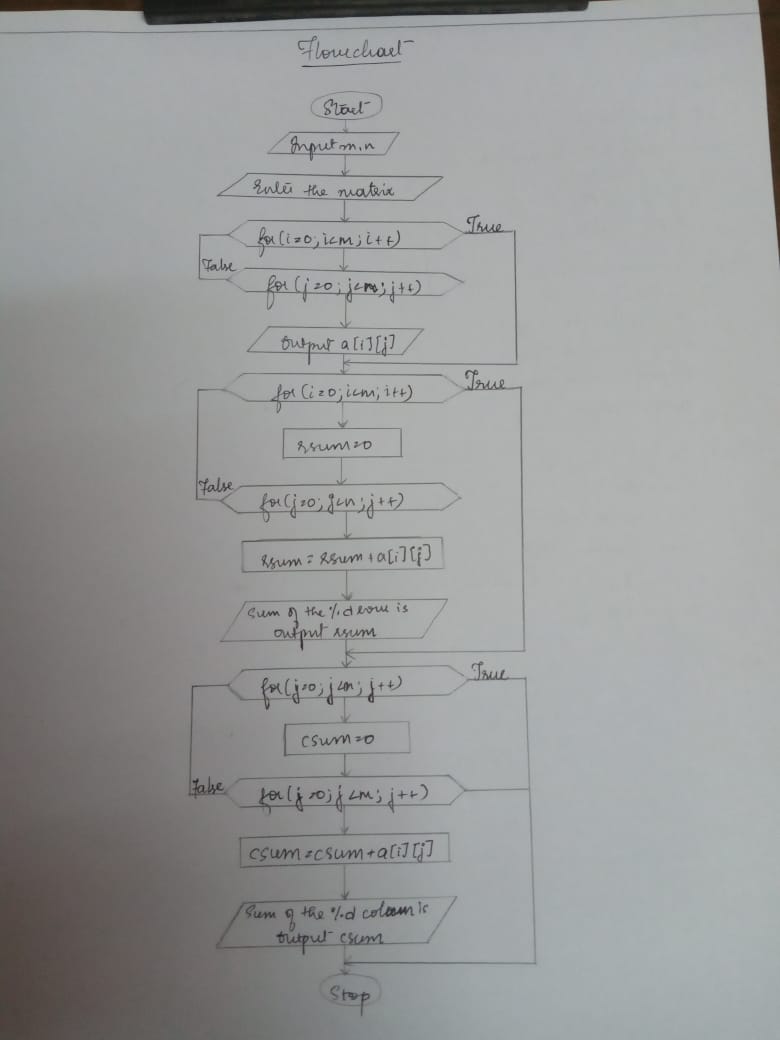 Flowchart
Start
Input m,n
Enter the matrix
for(i=0;i<m;i++)
True
False
for(j=0;j<n;j++)
output a[i][j]
for(i=0;i<m;i++)
True
rsum=0
False
for(j=0;j<n;j++)
rsum=rsum+a[i][j]
Sum of the %d row is
output rsum
for(j=0;j<n;j++)
True
csum=0
False
for(j=0;j<m;j++)
csum=csum+a[i][j]
Sum of the %d column is
output csum
Stop